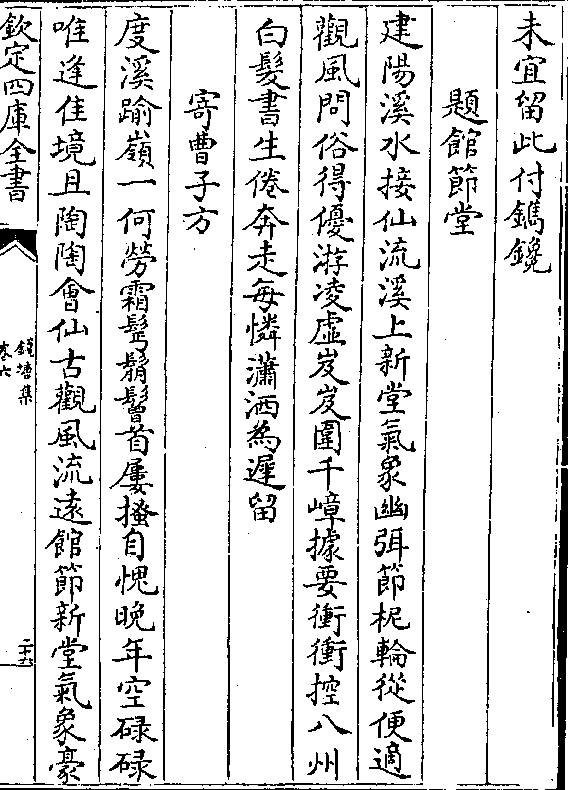 未宜留此付鐫鑱
題館節堂
建陽溪水接仙流溪上新堂氣象幽弭節柅輪從便適
觀風問俗得優游凌虛岌岌圍千嶂據要衝衝控八州
白髮書生倦奔走每憐瀟洒為遲留
寄曹子方
度溪踰嶺一何勞霜髩鬅鬙首屢搔自愧晚年空碌碌
唯逢佳境且陶陶會仙古觀風流遠館節新堂氣象豪
欽定四庫全書
錢塘集
卷六
二十六